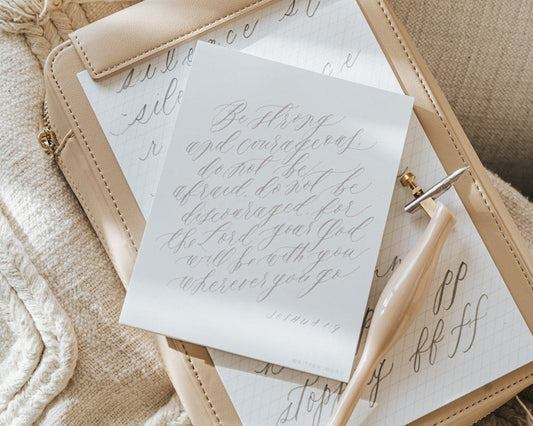 silence
silence
Be strong
and courageous.
do not be
afraid. do not be
discouraged. for
the Lord your God
will be with you
wherever you go
JOSHUA 1:9
WRITTEN WORD
pp
ff ff
stopping